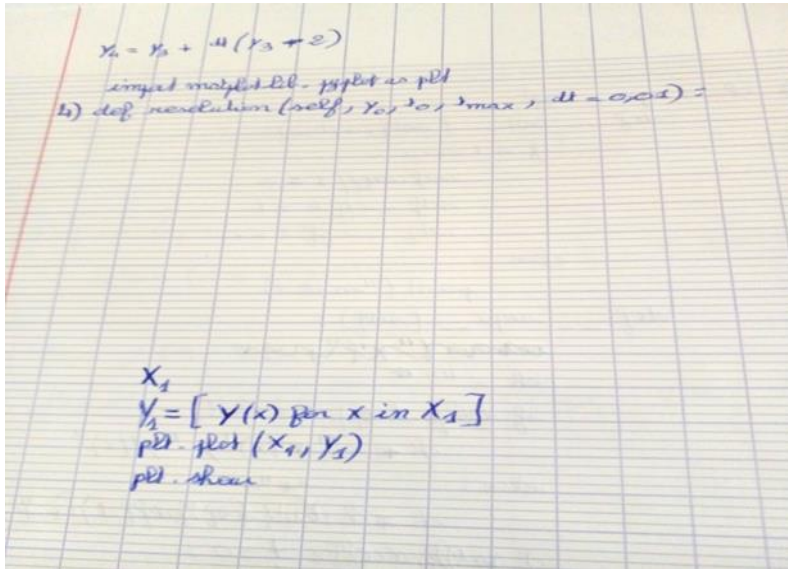 Y₄ = Y₃ + dt (Y₃ * 2)
import matplotlib.pyplot as plt
4) def resolution (self, Y₀, t₀, tmax, dt = 0,01) :
X₁
Y₁ = [ Y(x) for x in X₁ ]
plt.plot (X₁, Y₁)
plt.show